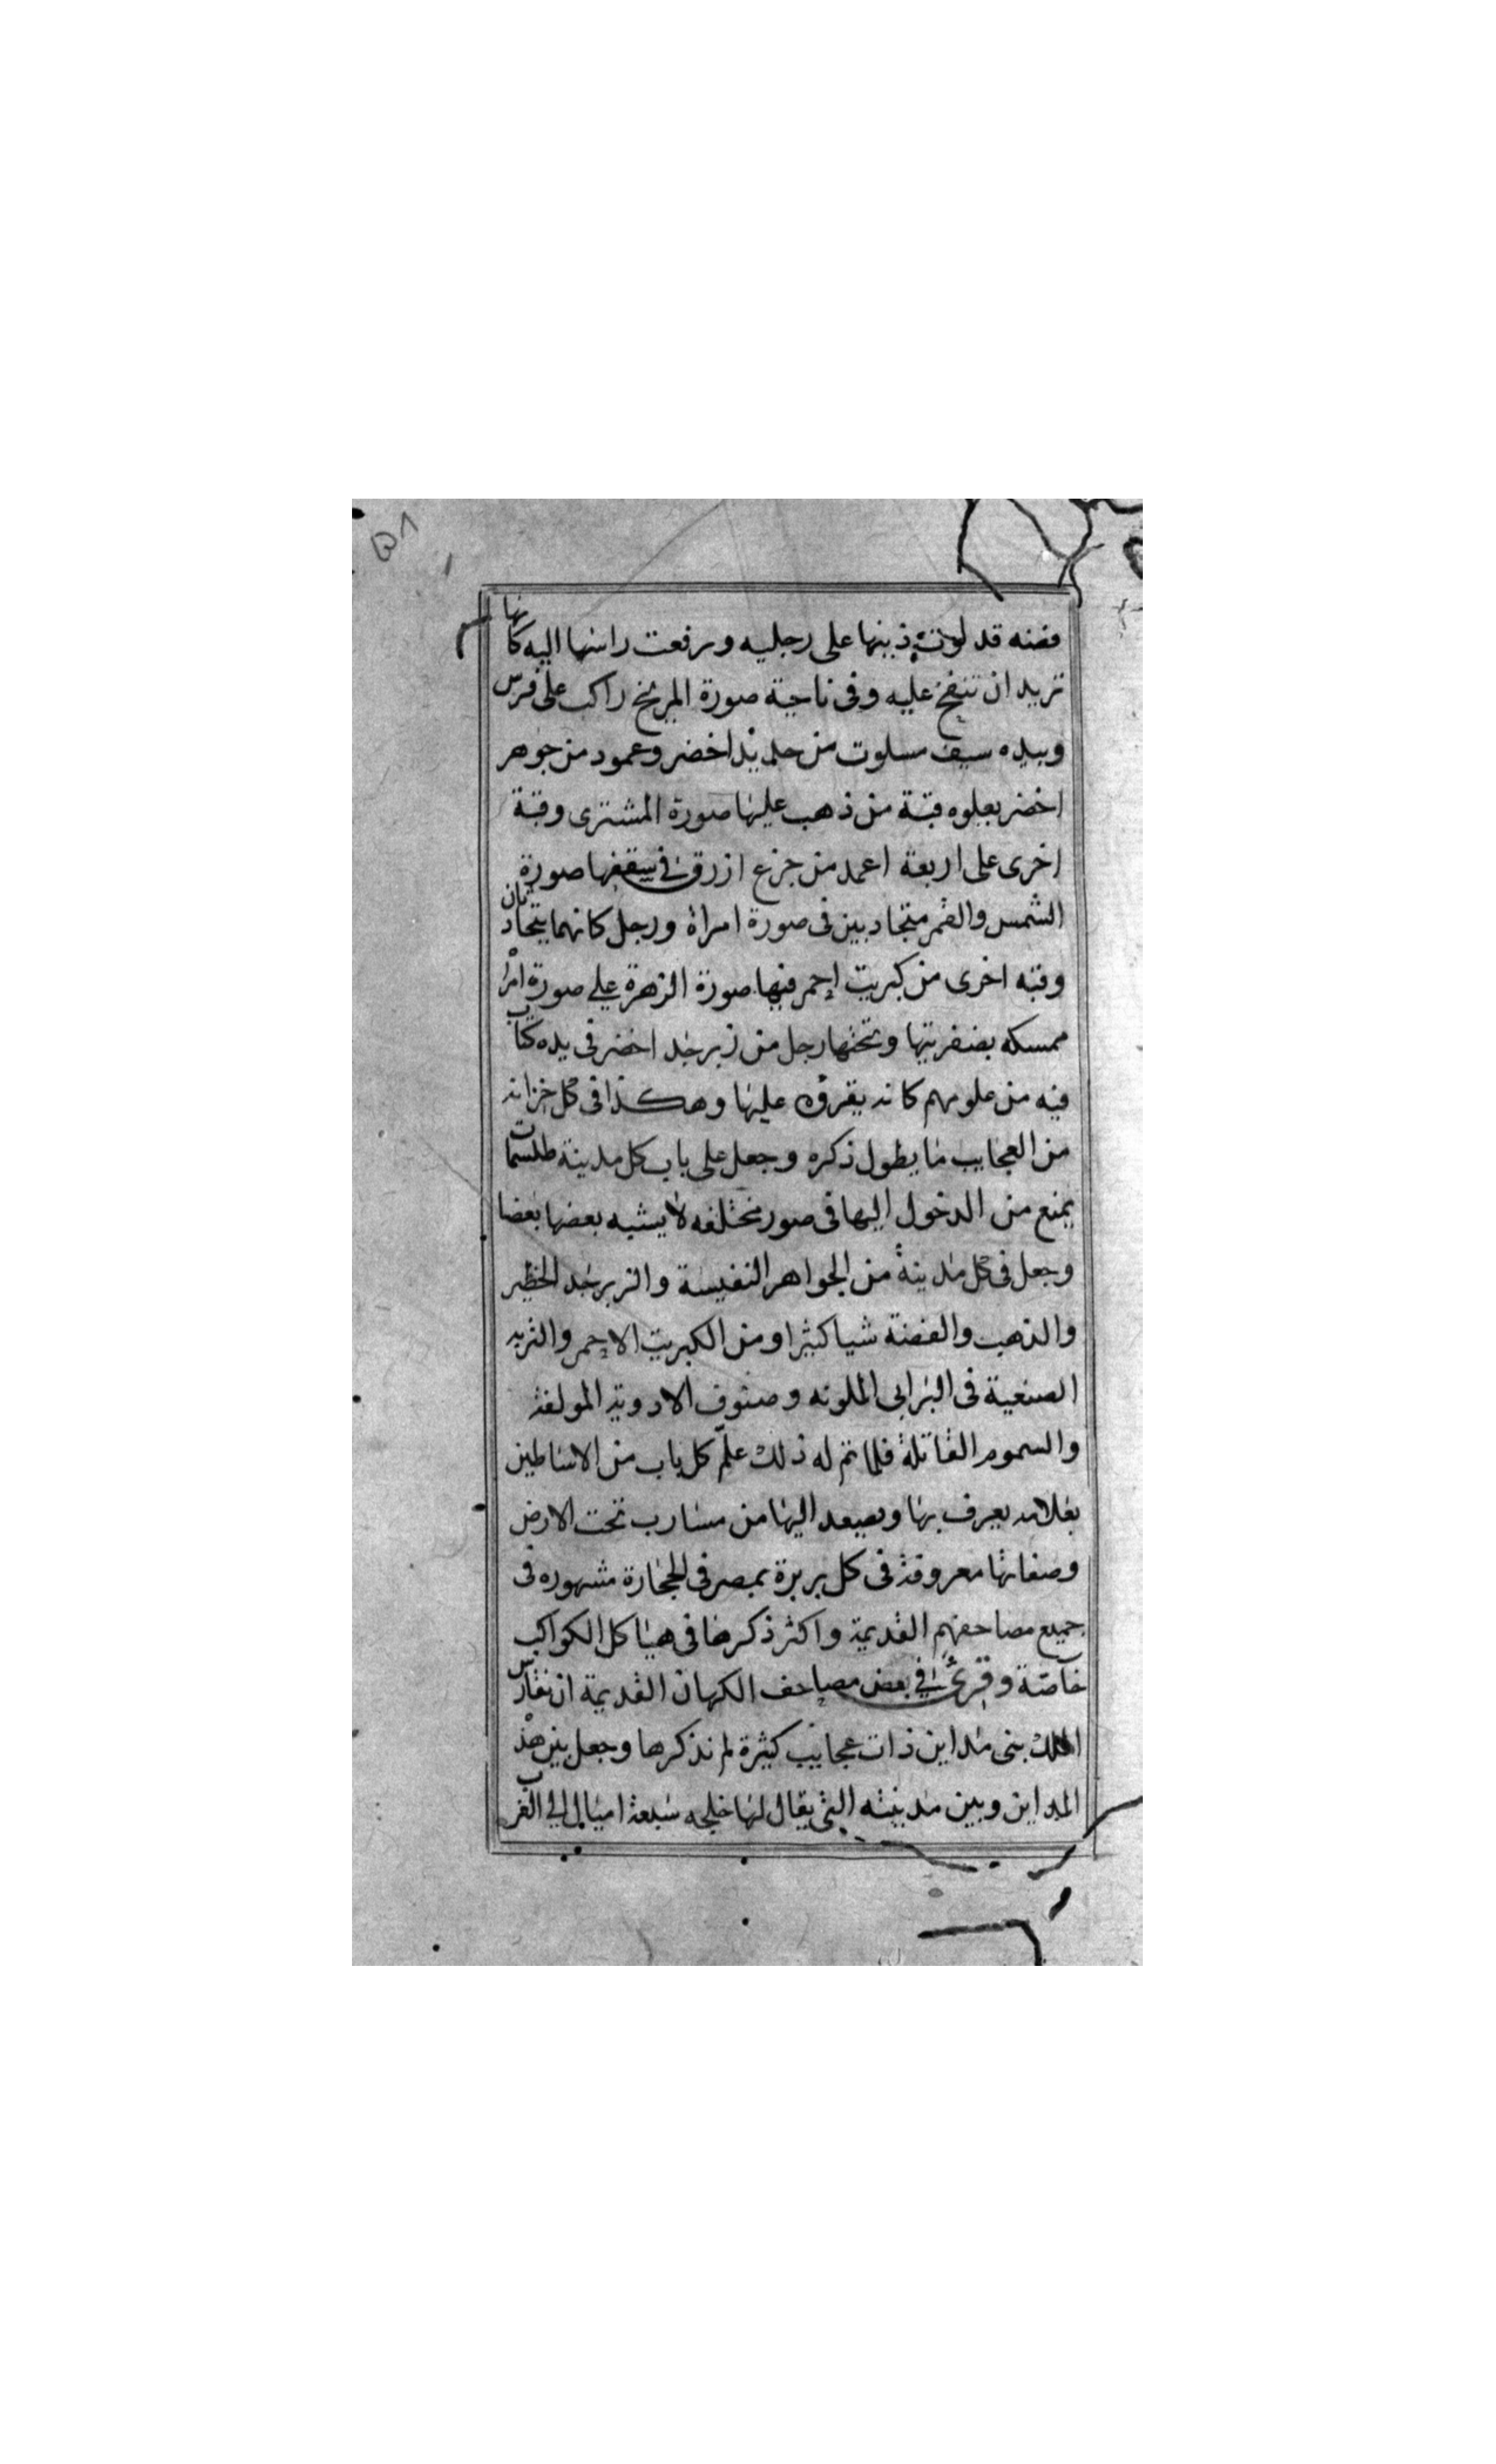 فضه قد لوت ذنبها على رجليه ورفعت راسها اليه كانها
تريد ان تنفخ عليه وفى ناحية صورة المريخ راكب على فرس
وبيده سيف مسلوت من حديد اخضر وعمود من جوهر
اخضر يعلوه قبة من ذهب عليها صورة المشترى وقبة
اخرى على اربعة اعمد من جزع ازرق فى سقفها صورة
الشمس والقمر متحادبين فى صورة امراة ورجل كانهما يتحادثان
وقبه اخرى من كبريت احمر فيها صورة الزهرة على صورة امراة
ممسكه بضفريتها وتحتها رجل من زبرجد اخضر فى يده كتاب
فيه من علومهم كانه يقروه عليها وهكذا فى كل خزانه
من العجايب ما يطول ذكره وجعل على باب كل مدينة طلسمات
يمنع من الدخول اليها فى صور مختلفه لا يشبه بعضها بعضا
وجعل فى كل مدينة من الجواهر النفيسة والزبرجد الخطير
والذهب والفضة شيا كثيرا ومن الكبريت الاحمر والتربه
الصنعية فى البرابى الملونه وصنوف الادوية المولفة
والسموم القاتلة فلما تم له ذلك علم كل باب من الاساطين
بعلامه يعرف بها ويصعد اليها من مسارب تحت الارض
وصفاتها معروفة فى كل بربرة بمصر فى الحجارة مشهوره فى
جميع مصاحفهم القديمة واكثر ذكرها فى هياكل الكواكب
خاصة وقرئ فى بعض مصاحف الكهان القديمة ان نقارس
الملك بنى مداين ذات عجايب كثيرة لم نذكرها وجعل بين هذه
المداين وبين مدينته التى يقال لها خلجه سبعة اميال الى الغرب